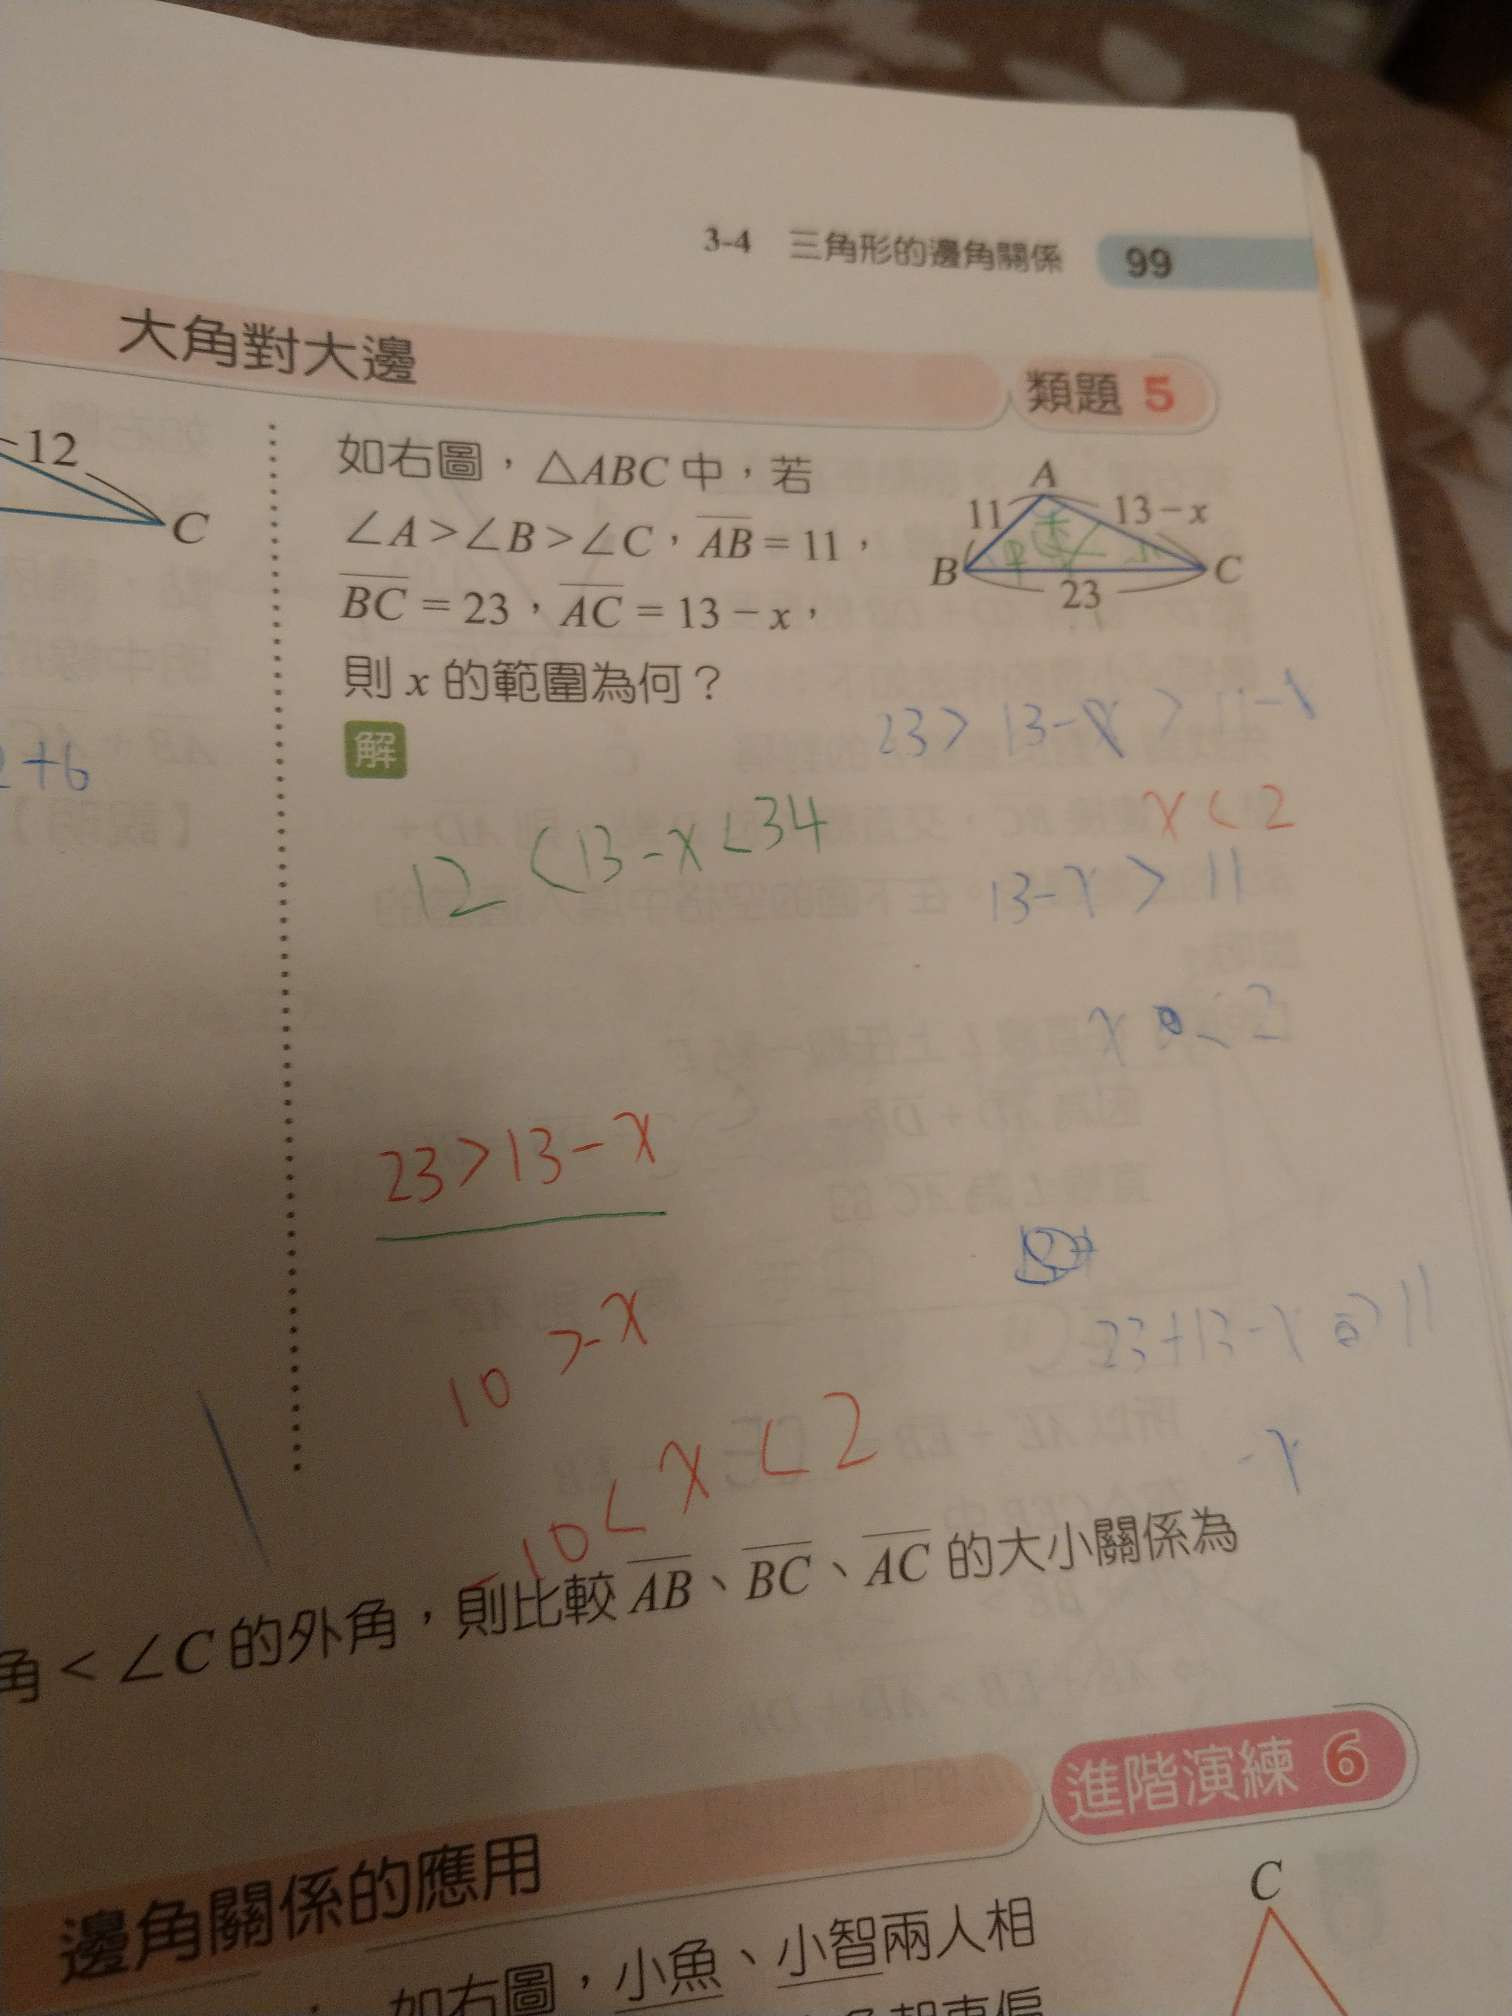 3-4 三角形的邊角關係 99
大角對大邊
類題 5
12
C
如右圖，△ABC 中，若
∠A>∠B>∠C，AB = 11，
BC = 23，AC = 13 - x，
則 x 的範圍為何？
A
11
13 - x
B
C
23
解
23 > 13-x > 11
+6
12 < 13-x < 34
x < 2
13-x > 11
x < 2
23 > 13-x
10 > -x
23+13-x > 11
-x
-10 < x < 2
角 < ∠C 的外角，則比較 AB、BC、AC 的大小關係為
進階演練 6
邊角關係的應用
C
如右圖，小魚、小智兩人相